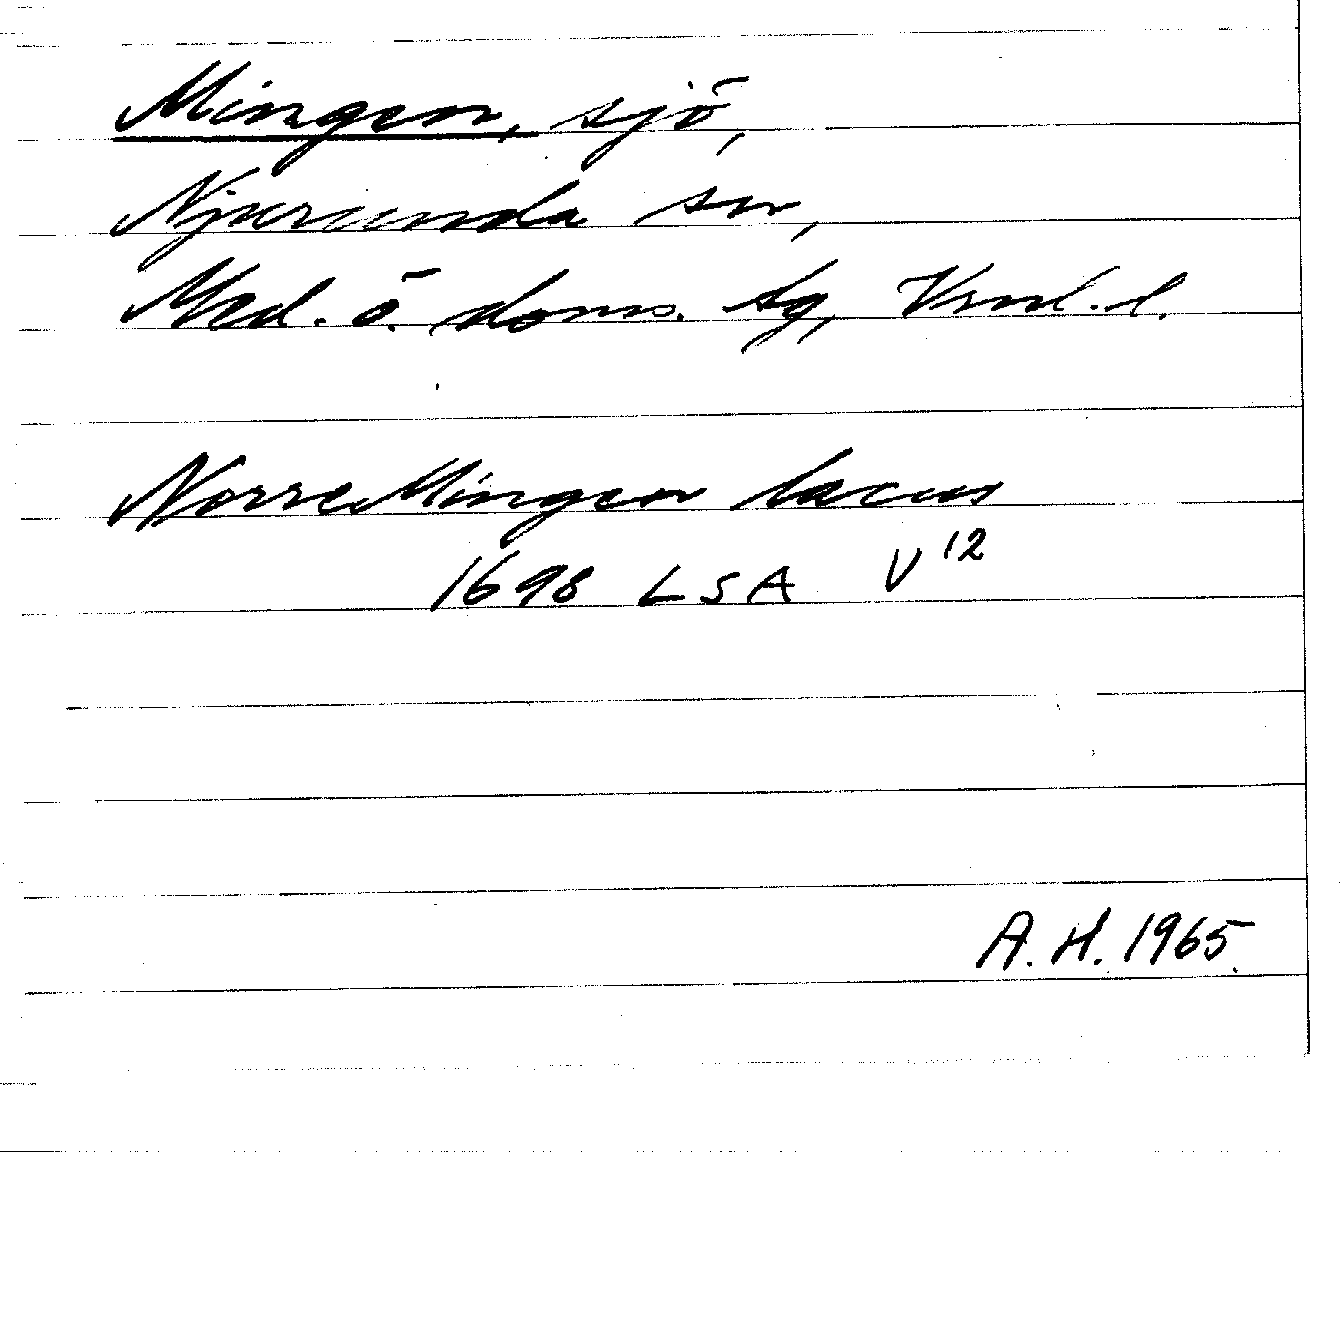 Mingen, sjö,
Njurunda sn,
Med. ö. doms. tg, Vrnl. l.
Norre Mingen lacus
1698 LSA V 12
A. H. 1965.